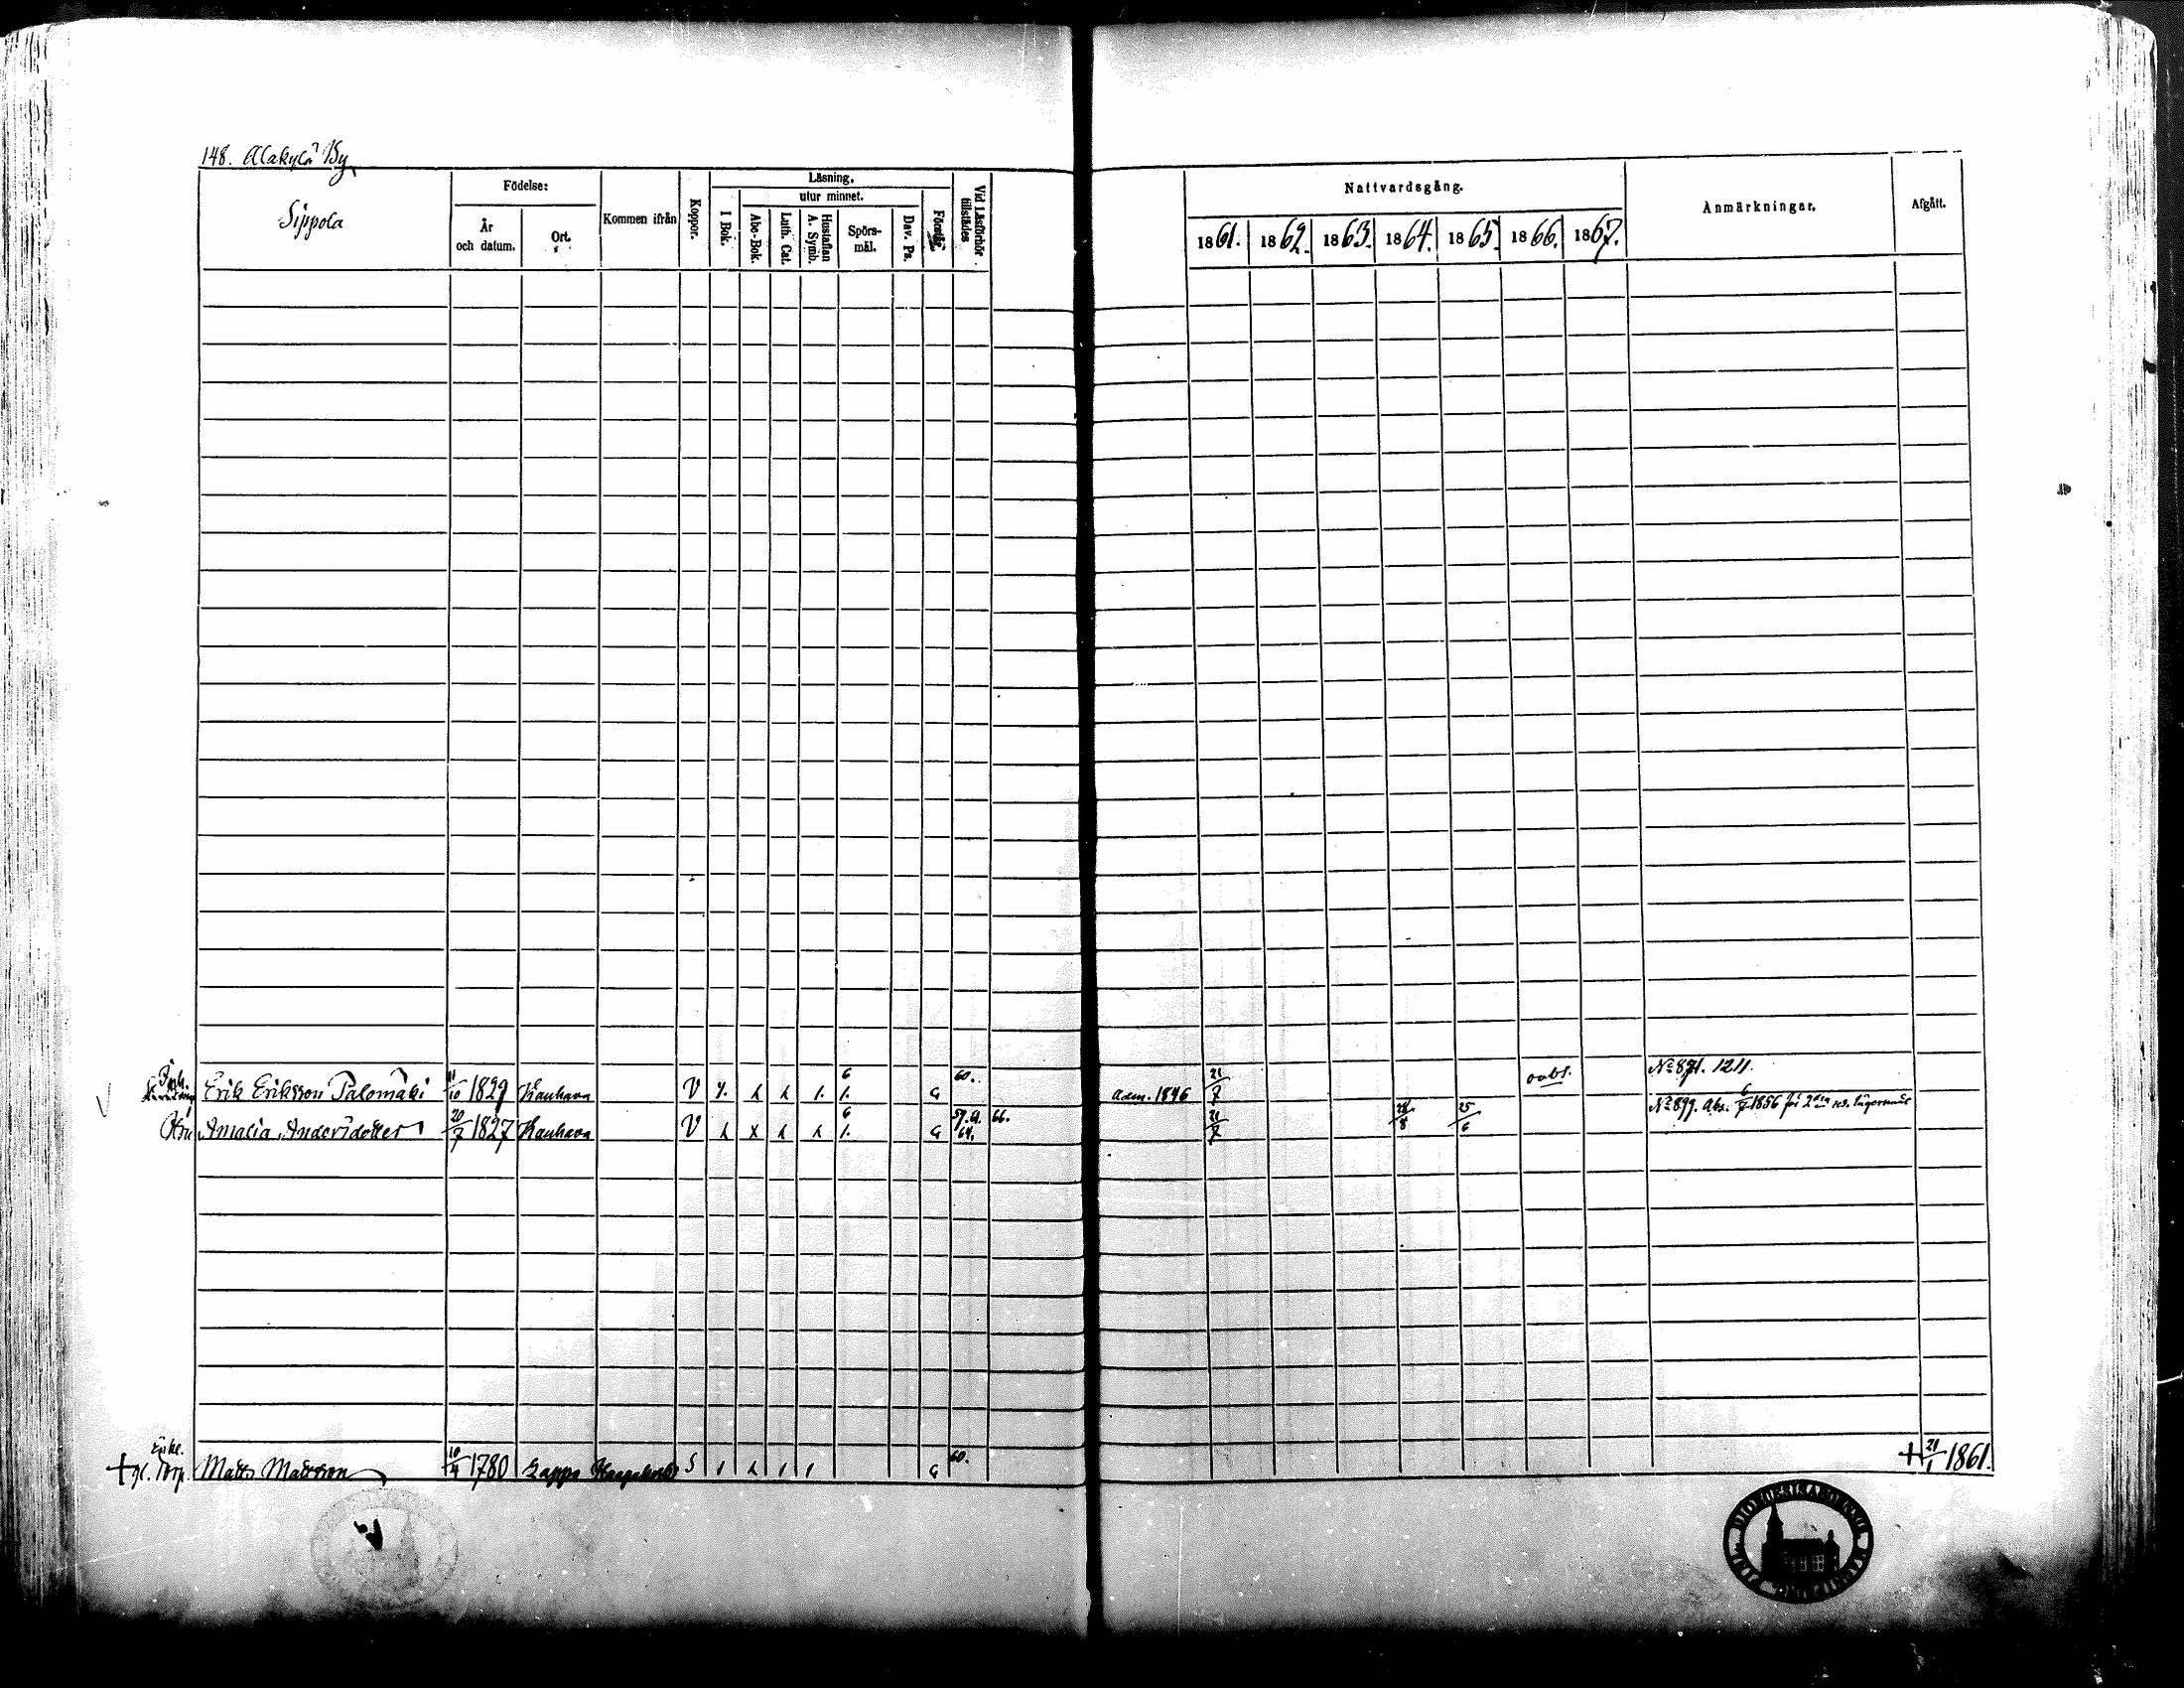 148. Alakylä By
Sippola
Födelse:
År och datum.
Ort.
Kommen ifrån
Koppor.
Läsning,
utur minnet.
I Bok.
Abc-Bok.
Luth. Cat.
Hustaflan A. Symb.
Spörs-mål.
Dav. Ps.
Förstår
Vid Läsförhör tillstädes
Nattvardsgång.
1861. 1862. 1863. 1864. 1865. 1866. 1867.
Anmärkningar.
Afgått.
Inh. Erik Eriksson Palomäki 11/10 1829 Kauhava V 6 60. G Adm. 1846 21/7 No 871. 1211.
Hu Amalia Andersdotter 20/7 1827 Kauhava V 6 G 59. 61. 64. 66. 21/7 28/8 25/6 No 899. Abs. 6/7 1856 för 2dra
+ Enkl. gl. Torp. Matts Mattsson 10/4 1780 Lappo S G 60. + 21/1 1861.